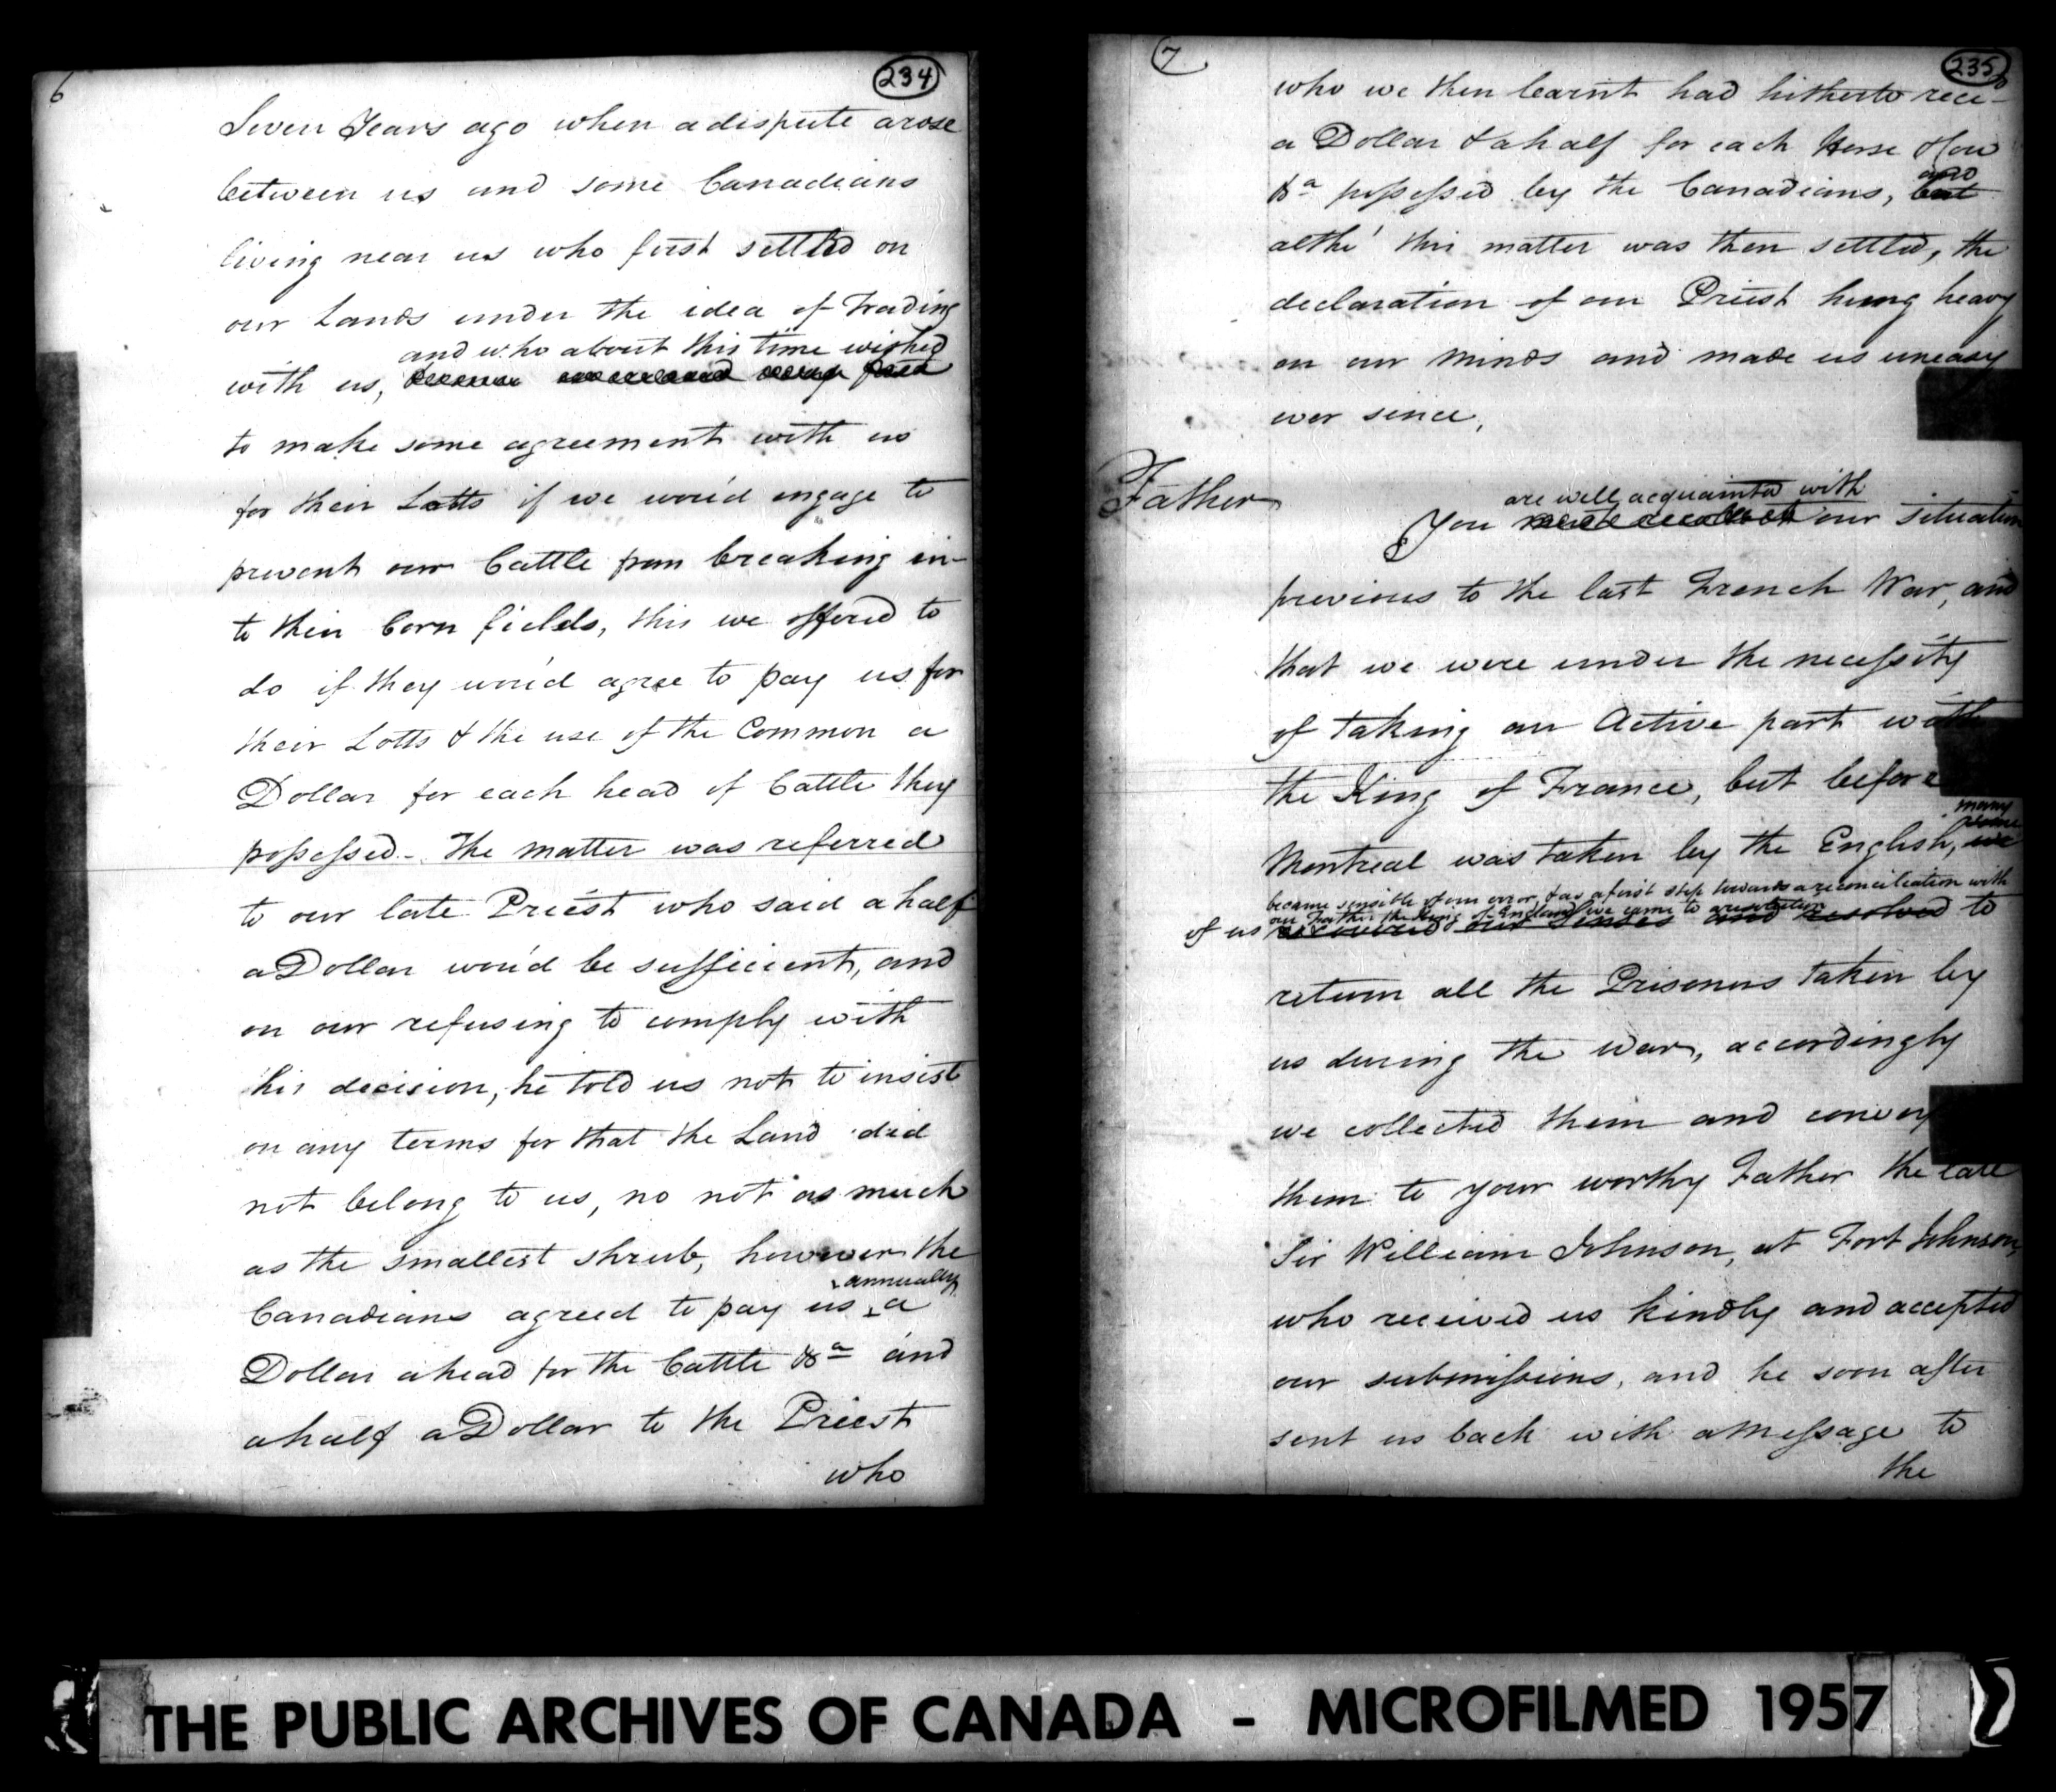 6
234
Seven Years ago when a dispute arose
between us and some Canadians
living near us who first settled on
our Lands under the idea of Trading
and who about this time wished
with us,
to make some agreement with us
for their Lotts if we wou'd engage to
prevent our Cattle from breaking in-
to their Corn fields, this we offered to
do if they wou'd agree to pay us for
their Lotts & the use of the Common a
Dollar for each head of Cattle they
possessed - The matter was referred
to our late Priest who said a half
a Dollar wou'd be sufficient, and
on our refusing to comply with
his decision, he told us not to insist
on any terms for that the Land did
not belong to us, no not as much
as the smallest shrub, however the
annually
Canadians agreed to pay us a
Dollar a head for the Cattle &a and
a half a Dollar to the Priest
who
7
235
who we then learnt had hitherto rece-
a Dollar & a half for each Horse Cow
and
&a possessed by the Canadians, but
altho' this matter was then settled, the
declaration of our Priest hung heavy
on our minds and made us uneasy
ever since,
Father
are well acquainted with
You our situation
previous to the last French War, and
that we were under the necessity
of taking an Active part with
the King of France, but before
many
some
Montreal was taken by the English, we
became sensible of our error, & as a first step towards a reconciliation with
our Father the King of England we came to a resolution
of us recovered our Senses and resolved to
return all the Prisoners taken by
us during the War, accordingly
we collected them and convey
them to your worthy Father the late
Sir William Johnson, at Fort Johnson,
who received us kindly and accepted
our submissions, and he soon after
sent us back with a Message to
the
THE PUBLIC ARCHIVES OF CANADA - MICROFILMED 1957